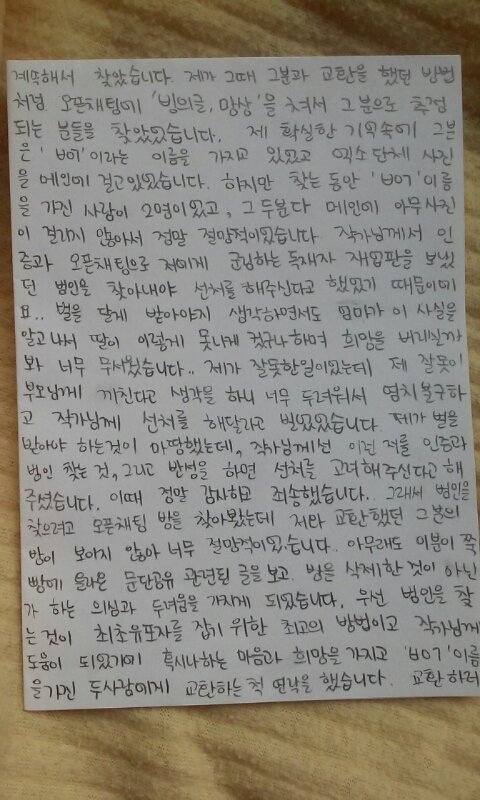 계속해서 찾았습니다. 제가 그때 그분과 교환을 했던 방법
처럼 오픈채팅에 '빙의글, 망상'을 쳐서 그 분으로 추정
되는 분들을 찾았었습니다. 제 확실한 기억속에 그분
은 'ㅂㅇㄱ'이라는 이름을 가지고 있었고 엑소 단체 사진
을 메인에 걸고있었습니다. 하지만 찾는동안 'ㅂㅇㄱ'이름
을 가진 사람이 2명이었고, 그 두분 다 메인에 아무사진
이 걸리지 않아서 정말 절망적이었습니다 작가님께서 인
증과 오픈채팅으로 저에게 군림하는 독재자 재업판을 보냈
던 범인을 찾아내야 선처를 해주신다고 했었기 때문이에
요.. 벌을 달게 받아야지 생각하면서도 엄마가 이 사실을
알고 나서 딸이 이렇게 못나게 컸구나하며 희망을 버리실까
봐 너무 무서웠습니다.. 제가 잘못한일이었는데 제 잘못이
부모님께 끼친다고 생각을 하니 너무 두려워서 염치불구하
고 작가님께 선처를 해달라고 빌었었습니다 제가 벌을
받아야 하는것이 마땅했는데, 작가님께선 이런 저를 인증과
범인 찾는 것, 그리고 반성을 하면 선처를 고려해주신다고 해
주셨습니다. 이때 정말 감사하고 죄송했습니다.. 그래서 범인을
찾으려고 오픈채팅 방을 찾아봤는데 저와 교환했던 그분의
방이 보이지 않아 너무 절망적이었습니다.. 아무래도 이분이 쪽
빵에 올라온 문단공유 관련된 글을 보고 방을 삭제한 것이 아닌
가 하는 의심과 두려움을 가지게 되었습니다. 우선 범인을 찾
는 것이 최초유포자를 잡기 위한 최고의 방법이고 작가님께
도움이 되었기에 혹시나하는 마음과 희망을 가지고 'ㅂㅇㄱ'이름
을가진 두사람에게 교환하는 척 연락을 했습니다. 교환 하려